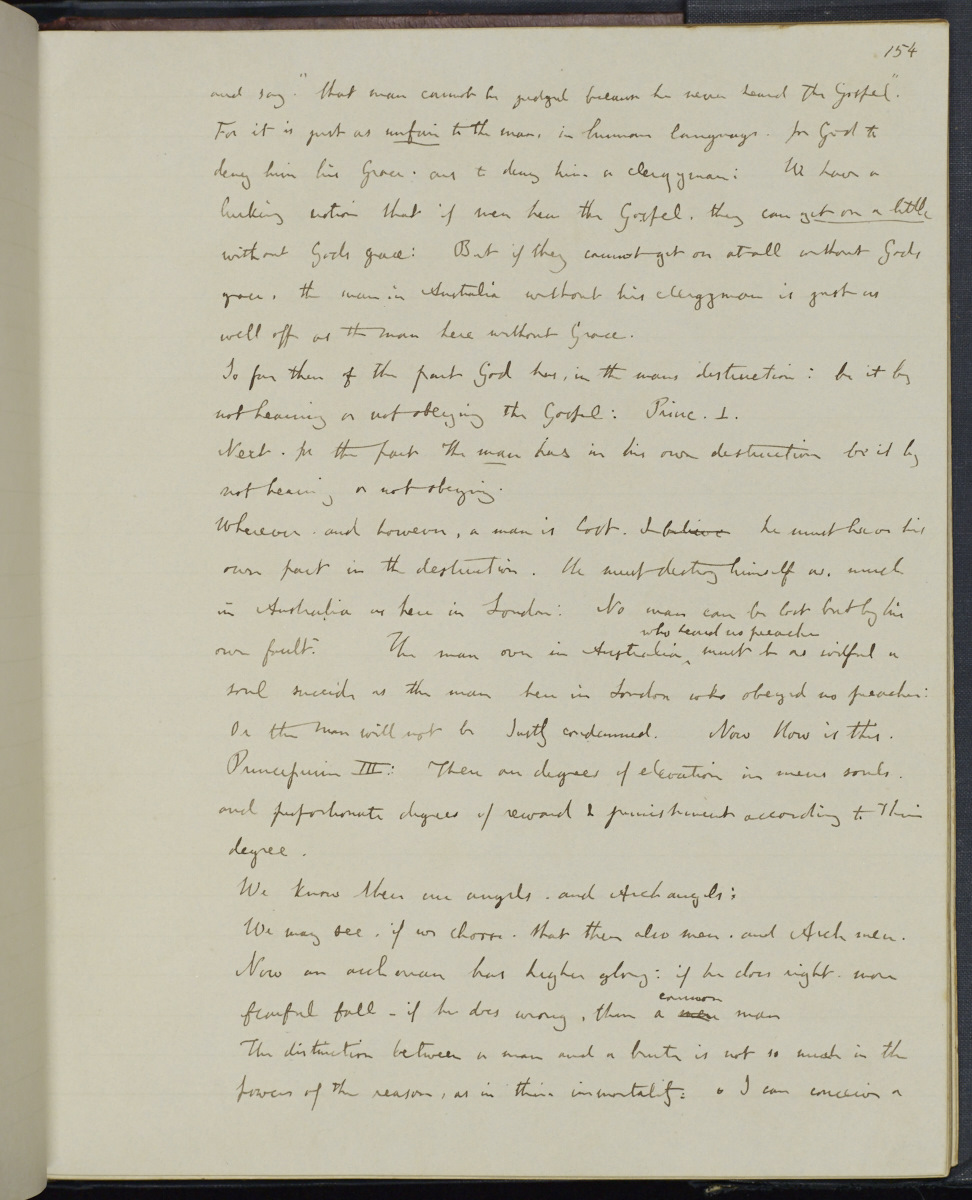 154
and say "that man cannot be judged because he never heard the Gospel".
For it is just as unfair to the man, in human language. for God to
deny him his Grace. as to deny him a clergyman: We have a
lurking notion that if men hear the Gospel, they can get on a little
without Gods grace: But if they cannot get on at all without Gods
grace, the man in Australia without his clergyman is just as
well off as the man here without Grace.
So far then of the part God has, in the mans destruction: be it by
not hearing or not obeying the Gospel: Princ. I.
Next. for the part the man has in his own destruction be it by
not hearing or not obeying.
Wherever. and however, a man is lost. I believe he must have his
own part in the destruction. He must destroy himself as, much
in Australia as here in London: No man can be lost but by his
own fault. The man over in Australia, who heard no preacher must be as wilful a
soul suicide as the man here in London who obeyed no preacher:
Or the man will not be Justly condemned. Now How is this.
Principium III: There are degrees of elevation in mens souls.
and proportionate degrees of reward & punishment according to their
degree.
We know there are angels. and Archangels:
We may see, if we choose. that there also men. and Arch men.
Now an archman has higher glory: if he does right. more
fearful fall - if he does wrong, then a men common man
The distinction between a man and a brute is not so much in the
powers of the reason, as in their immortality: I can conceive a